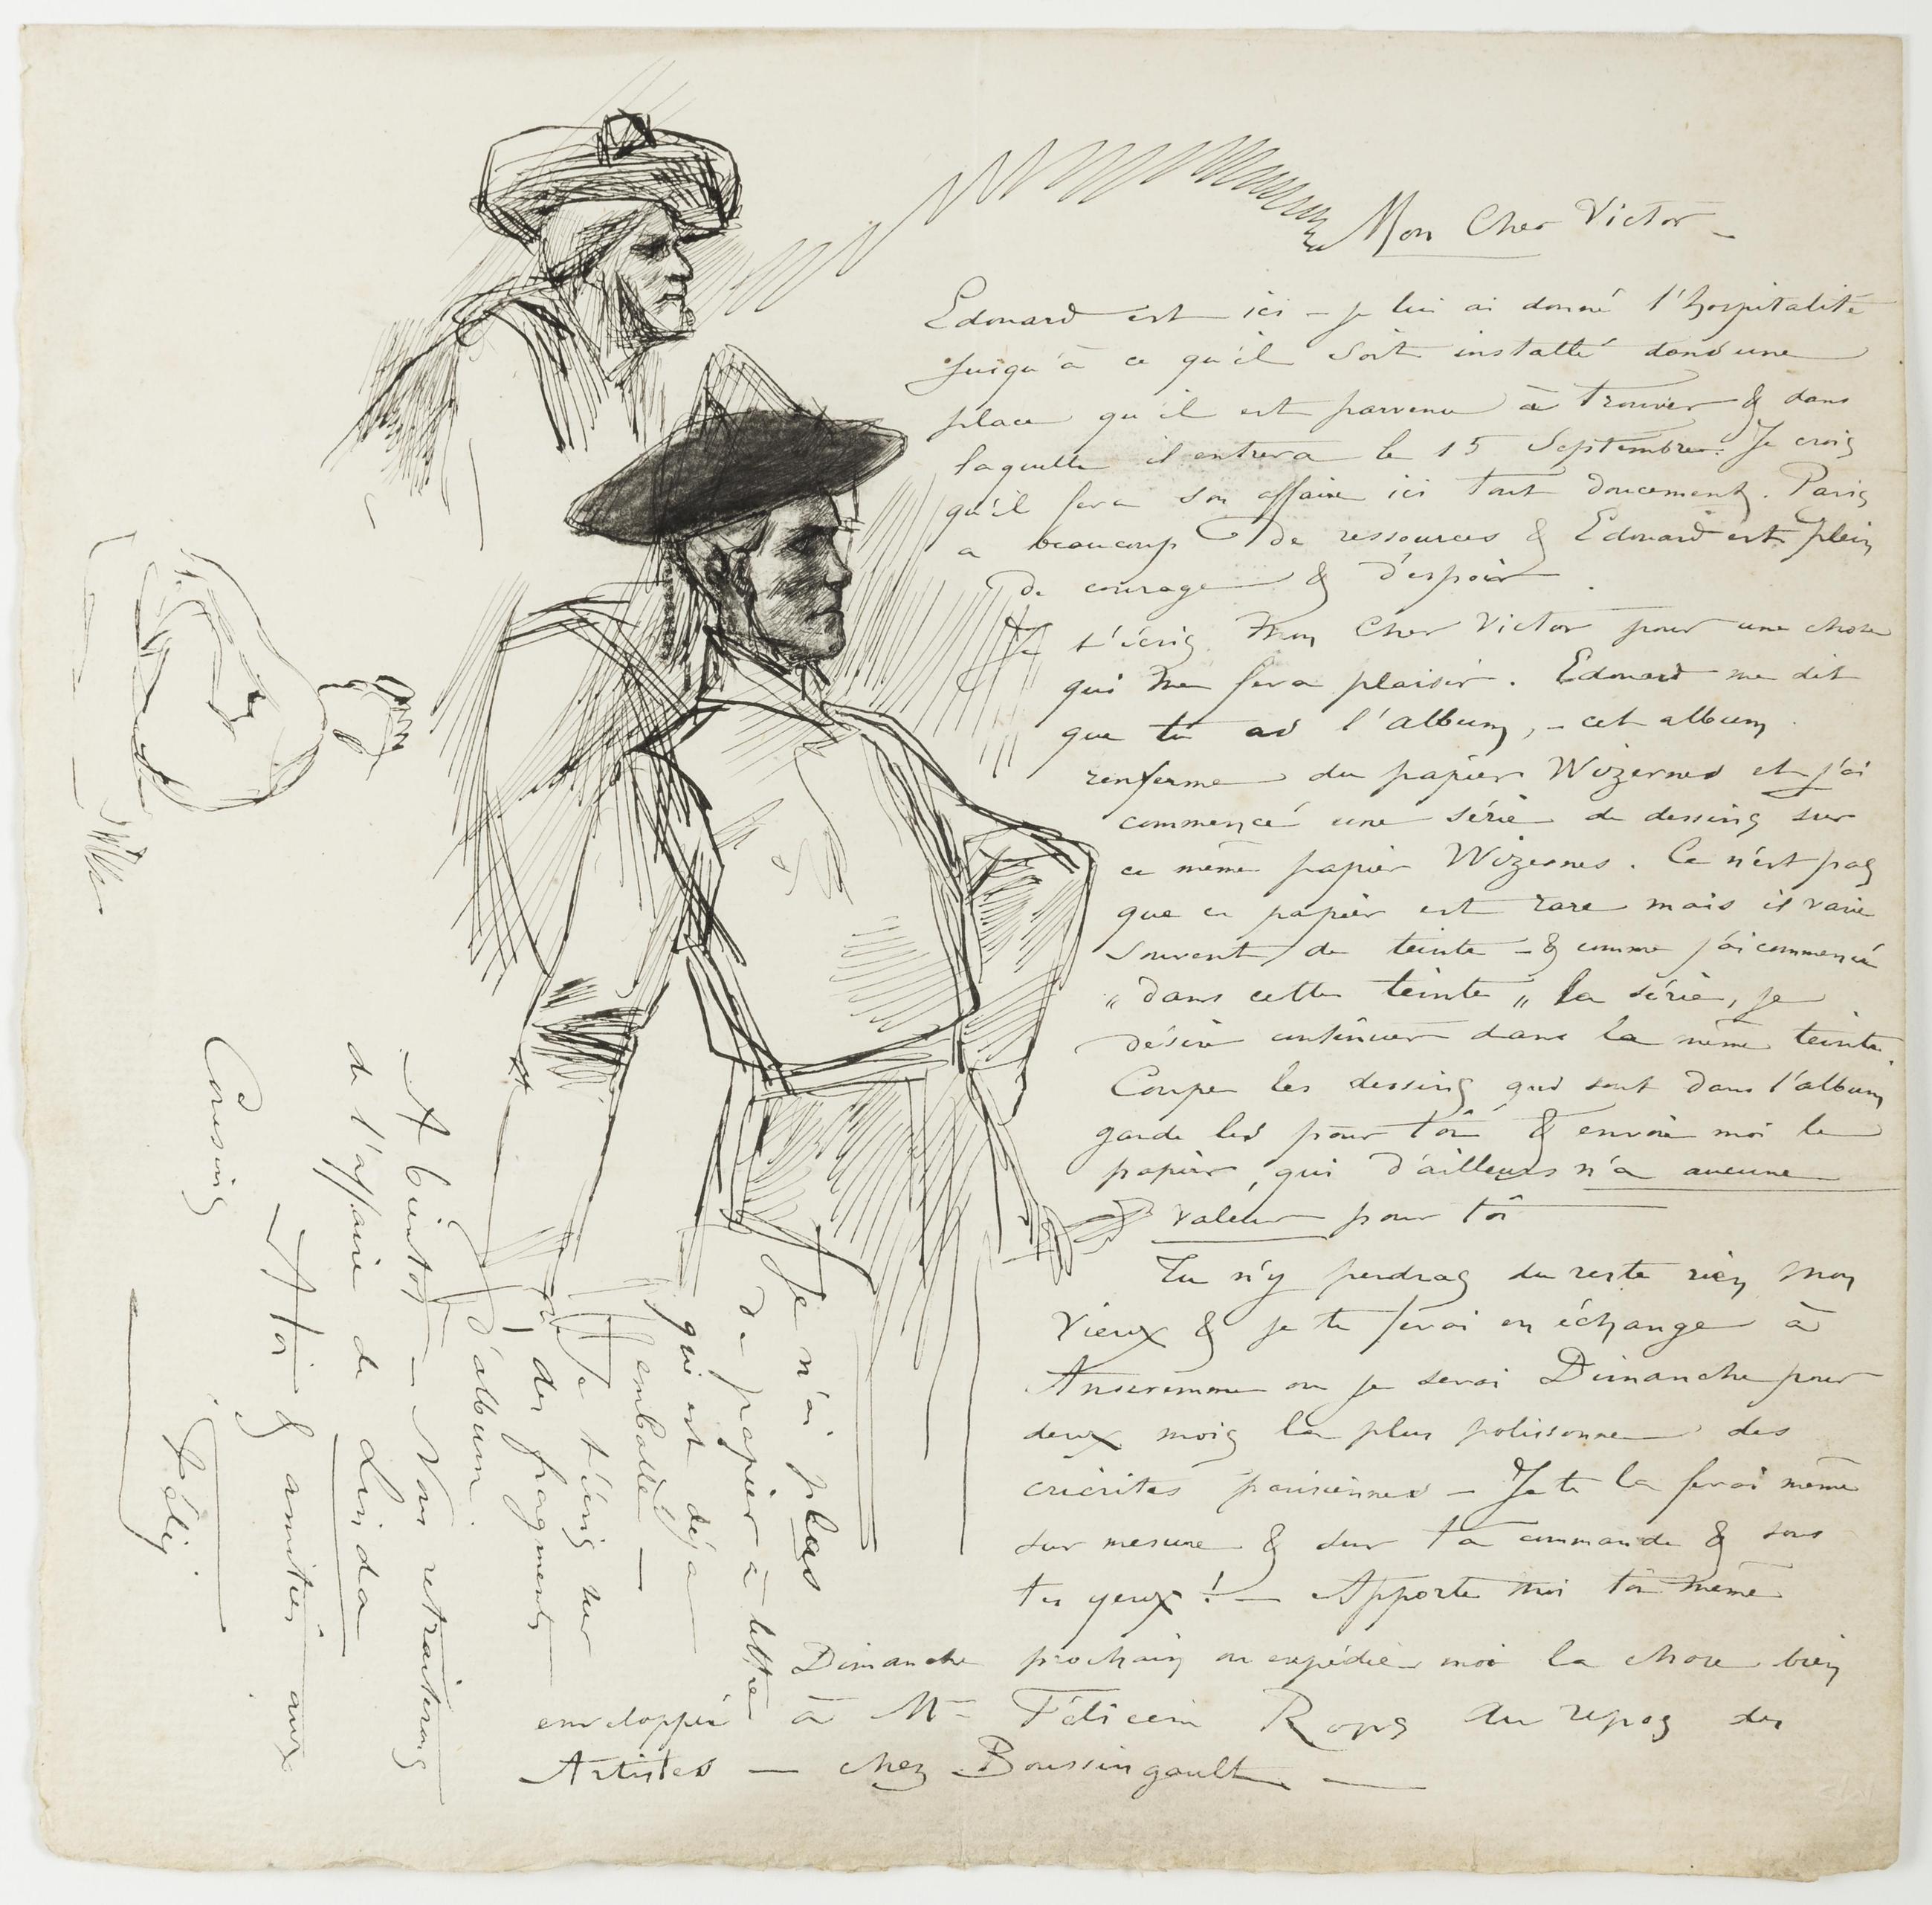 Mon Cher Victor –
Edouard est ici – je lui ai donné l'hospitalité
jusqu'à ce qu'il soit installé dans une
place qu'il est parvenu à trouver & dans
laquelle il entrera le 15 Septembre. Je crois
qu'il fera son affaire ici tout doucement. Paris
a beaucoup de ressources & Edouard est plein
de courage & d'espoir.
Je t'écris mon Cher Victor pour une chose
qui me fera plaisir. Edouard me dit
que tu as l'album, – cet album
renferme du papier Wizernes et j'ai
commencé une série de dessins sur
ce même papier Wizernes. Ce n'est pas
que ce papier est rare mais il varie
souvent de teinte – & comme j'ai commencé
„ dans cette teinte „ la série, je
désire continuer dans la même teinte.
Coupe les dessins qui sont dans l'album
garde les pour toi & envoie moi le
papier, qui d'ailleurs n'a aucune
valeur pour toi
Tu n'y perdras du reste rien mon
vieux & je te ferai en échange à
Anseremme ou je serai Dimanche pour
deux mois la plus polissonne des
parisiennes – Je te la ferai même
sur mesure & sur ta commande & sous
tes yeux ! – Apporte moi toi même
Dimanche prochain ou expédie moi la chose bien
enveloppée à Mr Félicien Rops au repos des
Artistes – chez Boussingault –
Je n'ai plus
de papier à lettre
qui est déjà
emballé –
Je t'écris sur
des fragments
d'album.
A bientôt – Nous retraiterons
de l'affaire de Linda
A toi & amitiés aux
Cousins
Féli.